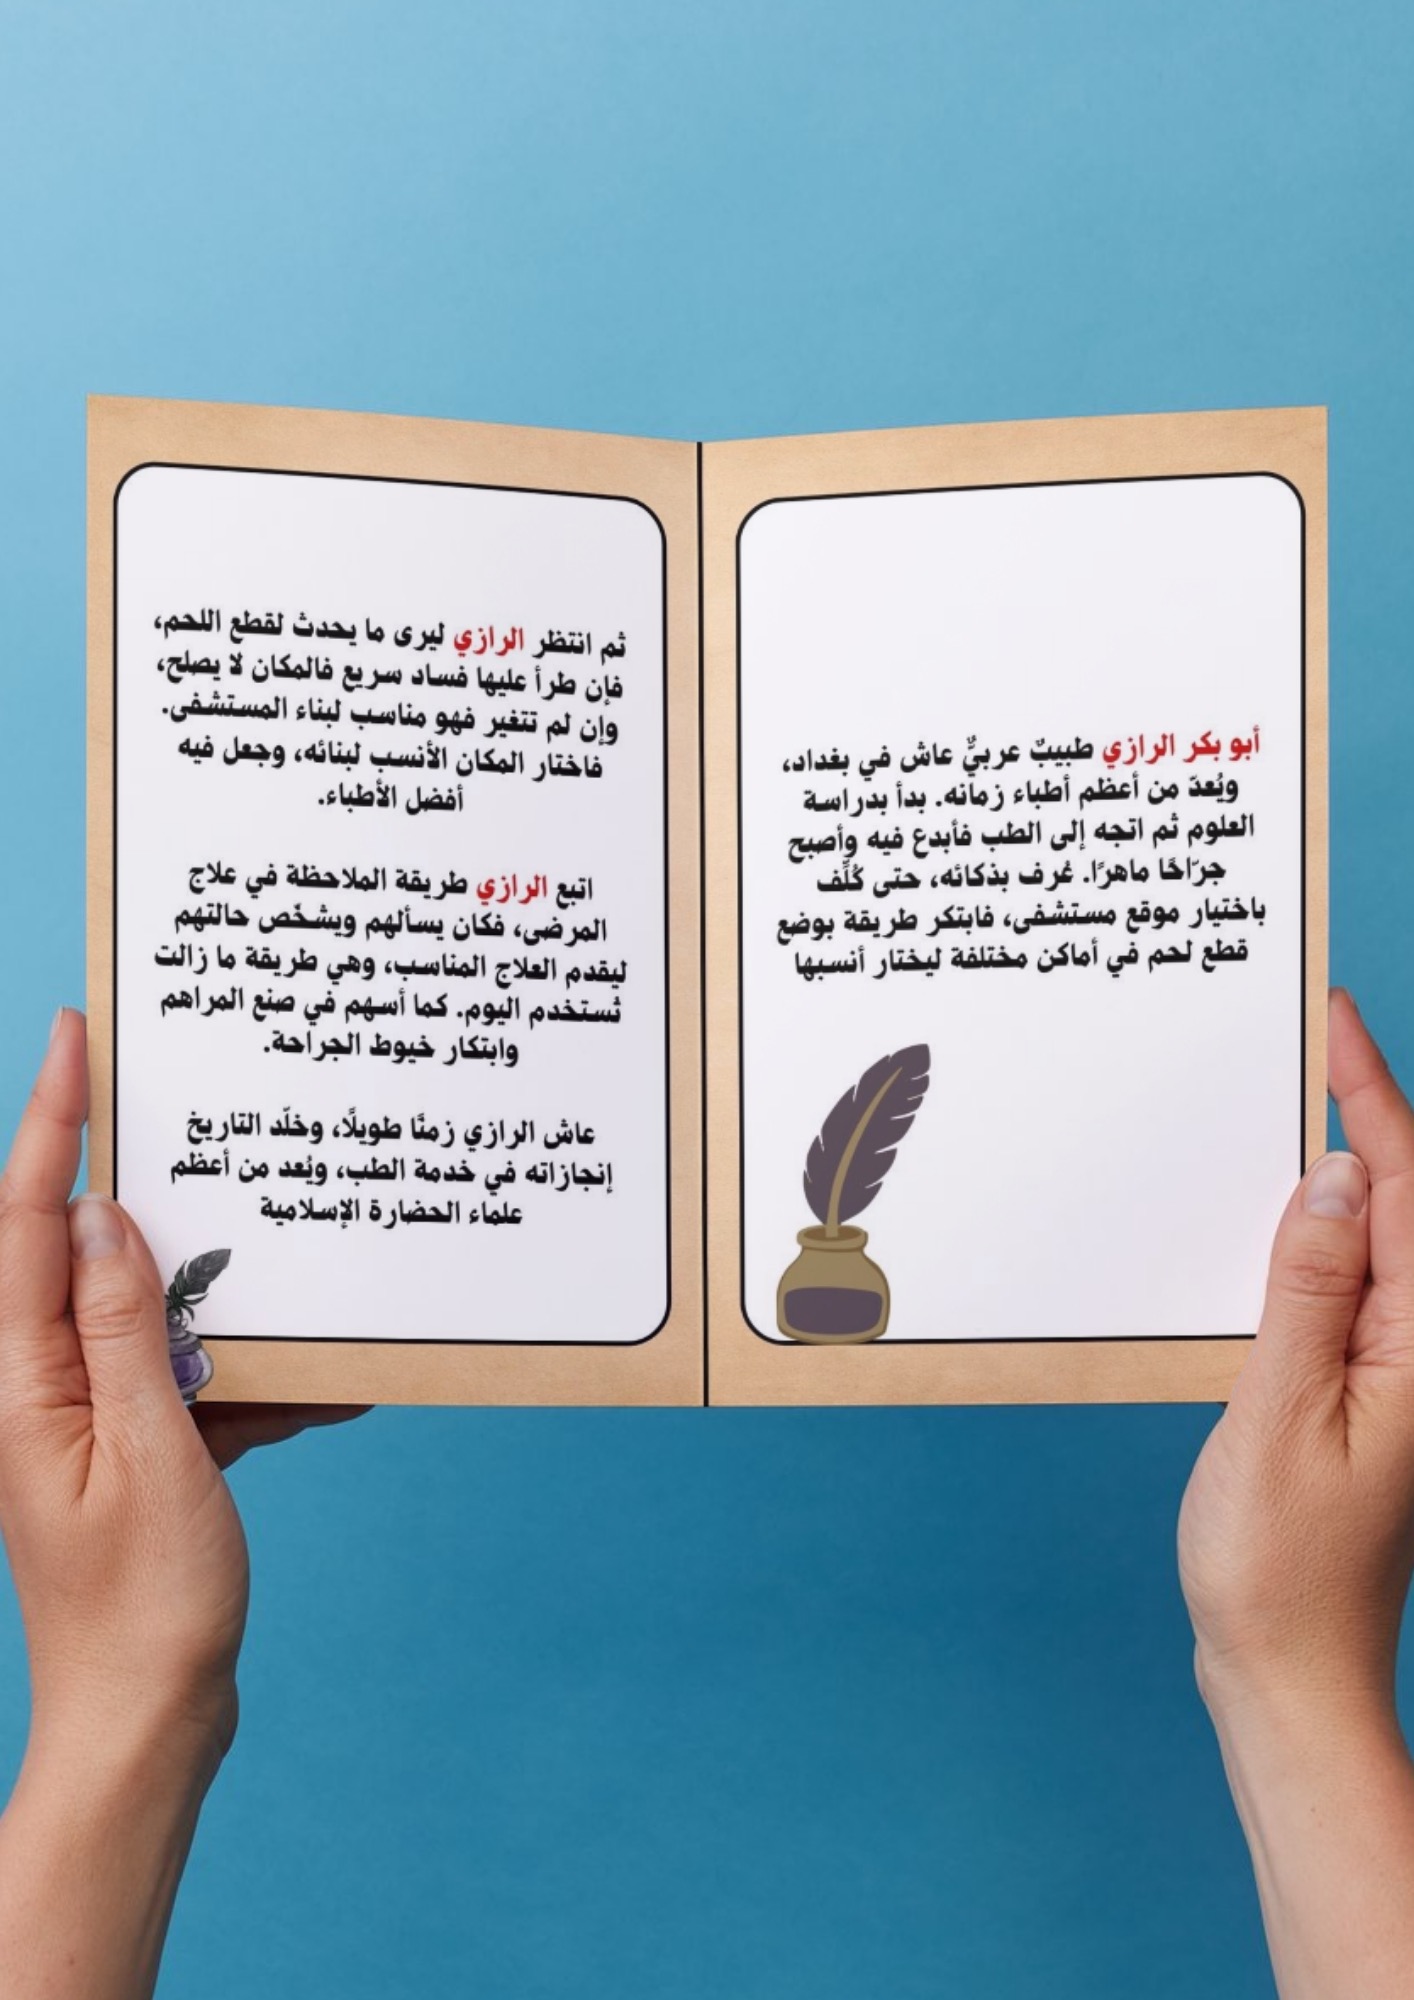 أبو بكر الرازي طبيبٌ عربيٌّ عاش في بغداد،
ويُعدّ من أعظم أطباء زمانه. بدأ بدراسة
العلوم ثم اتجه إلى الطب فأبدع فيه وأصبح
جرّاحًا ماهرًا. عُرف بذكائه، حتى كُلِّف
باختيار موقع مستشفى، فابتكر طريقة بوضع
قطع لحم في أماكن مختلفة ليختار أنسبها
ثم انتظر الرازي ليرى ما يحدث لقطع اللحم،
فإن طرأ عليها فساد سريع فالمكان لا يصلح،
وإن لم تتغير فهو مناسب لبناء المستشفى.
فاختار المكان الأنسب لبنائه، وجعل فيه
أفضل الأطباء.
اتبع الرازي طريقة الملاحظة في علاج
المرضى، فكان يسألهم ويشخّص حالتهم
ليقدم العلاج المناسب، وهي طريقة ما زالت
تُستخدم اليوم. كما أسهم في صنع المراهم
وابتكار خيوط الجراحة.
عاش الرازي زمنًا طويلًا، وخلّد التاريخ
إنجازاته في خدمة الطب، ويُعد من أعظم
علماء الحضارة الإسلامية